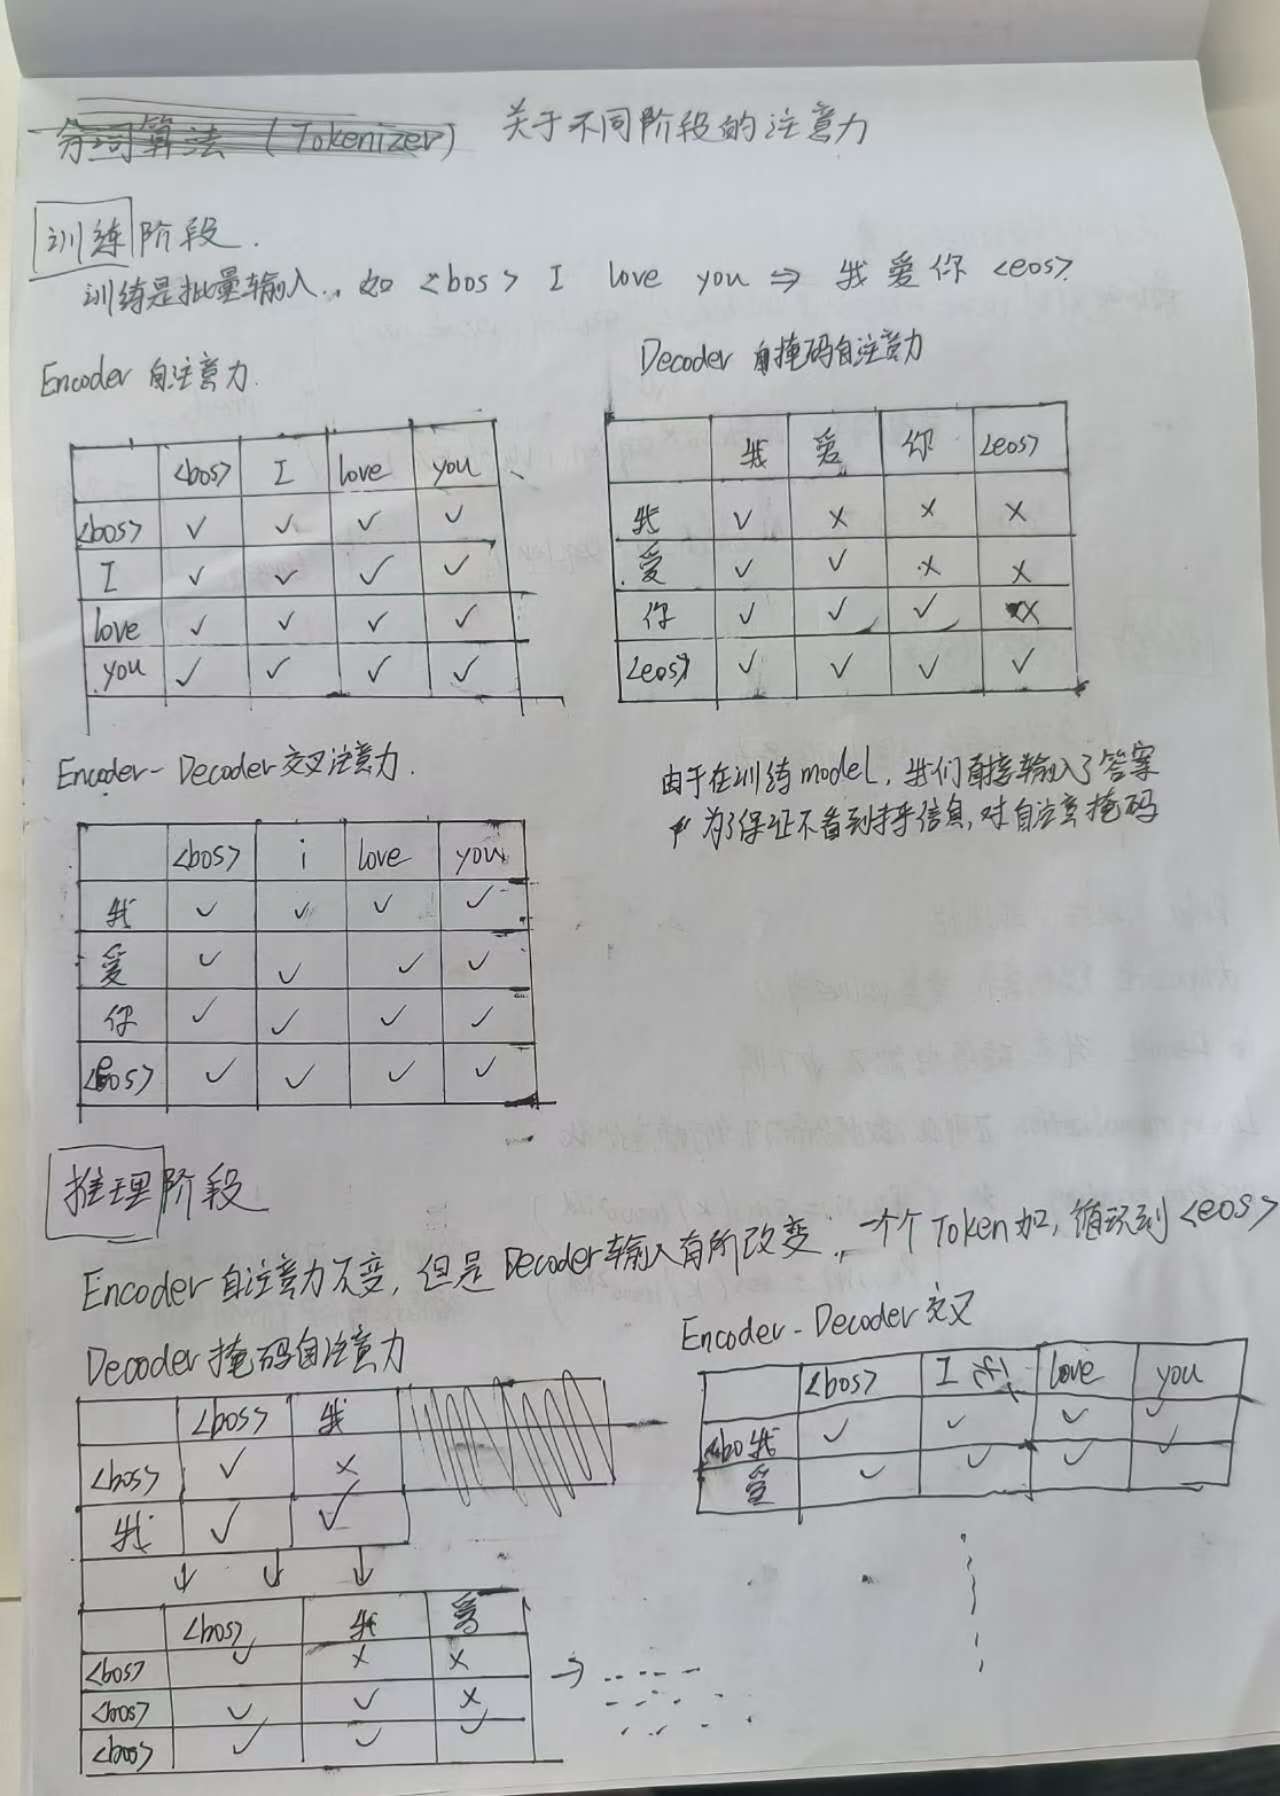 分词算法 (Tokenizer) 关于不同阶段的注意力
训练阶段.
训练是批量输入.. 如 <bos> I love you ⇒ 我爱你 <eos>.
Encoder 自注意力.
<bos> I love you
<bos> ✓ ✓ ✓ ✓
I ✓ ✓ ✓ ✓
love ✓ ✓ ✓ ✓
you ✓ ✓ ✓ ✓
Decoder 掩码自注意力
我 爱 你 <eos>
我 ✓ × × ×
爱 ✓ ✓ × ×
你 ✓ ✓ ✓ ×
<eos> ✓ ✓ ✓ ✓
Encoder-Decoder 交叉注意力.
<bos> i love you
我 ✓ ✓ ✓ ✓
爱 ✓ ✓ ✓ ✓
你 ✓ ✓ ✓ ✓
<eos> ✓ ✓ ✓ ✓
由于在训练model, 我们直接输入了答案
为了保证不看到信息, 对自注意掩码
推理阶段
Encoder 自注意力不变, 但是Decoder输入有所改变., 一个个Token加, 循环到<eos>
Decoder 掩码自注意力
<bos> 我
<bos> ✓ ×
我 ✓ ✓
↓ ↓ ↓
<bos> 我 爱
<bos> ✓ × ×
<bos> ✓ ✓ ×
<bos> ✓ ✓ ✓
→
Encoder-Decoder 交叉
<bos> I love you
我 ✓ ✓ ✓ ✓
爱 ✓ ✓ ✓ ✓